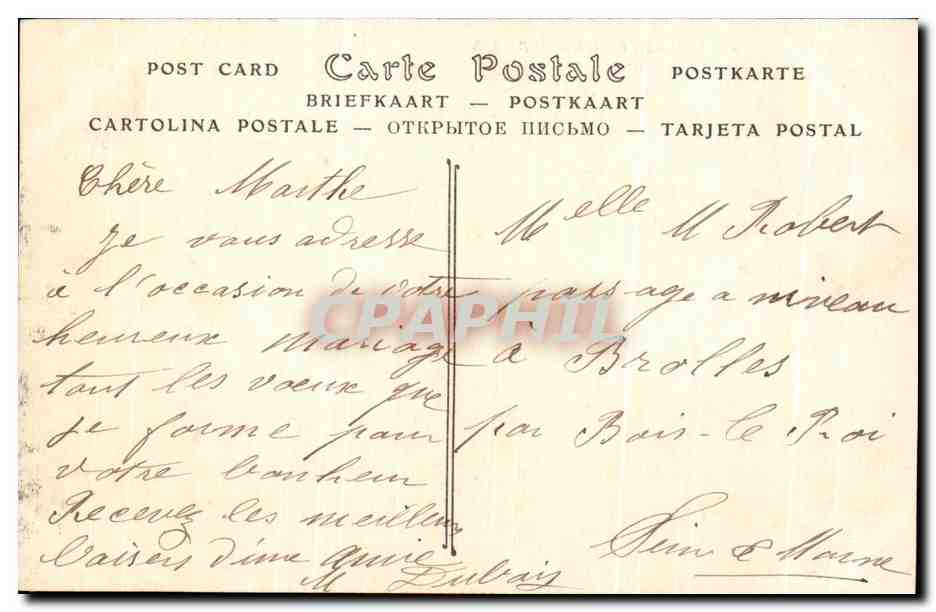 POST CARD Carte Postale POSTKARTE
BRIEFKAART — POSTKAART
CARTOLINA POSTALE — ОТКРЫТОЕ ПИСЬМО — TARJETA POSTAL
Chère Marthe
Je vous adresse
à l'occasion de votre
heureux mariage
tout les vœux que
je forme pour
votre bonheur
Recevez les meilleurs
baisers d'une amie
M Dubois
Melle M Robert
passage a niveau
à Brolles
par Bois-le Roi
Seine & Marne
CPAPHIL